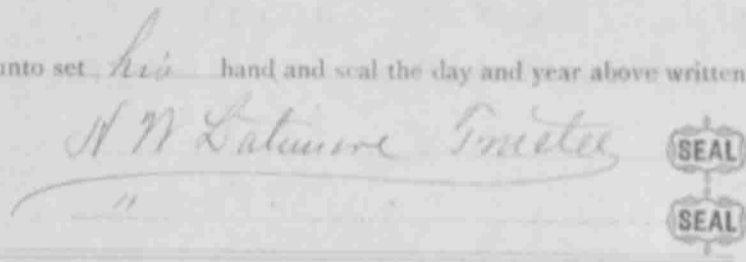 unto set his hand and seal the day and year above written
N W Latimore Trustee SEAL
" SEAL